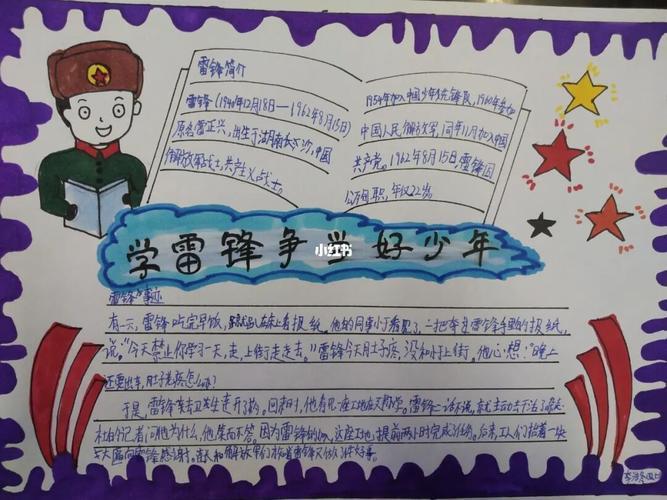 雷锋简介
雷锋(1940年12月18日——1962年8月15日)
原名雷正兴,出生于湖南长沙,中国
解放军战士,共产主义战士。
1954年加入中国少年先锋队,1960年参加
中国人民解放军,同年11月加入中国
共产党。1962年8月15日,雷锋因
公殉职,年仅22岁。
学雷锋争当好少年
小红书
雷锋事迹
有一天,雷锋吃完早饭,看报纸。他的同事小于看见了,一把夺走雷锋手里的报纸,
说:"今天禁止你学习一天,走,上街走走去。"雷锋今天肚子疼,没和小于上街。他心想:"晚上
还要出车,肚子老疼怎么办?
于是,雷锋来去卫生走开了药。回来时,他看见一座工地在
雷锋二话不说,
记者问他为什么,他笑而不答。因为雷锋的 这座工地提前两小时完成了任务。后来,工人们抬着一块
大匾向雷锋感谢。